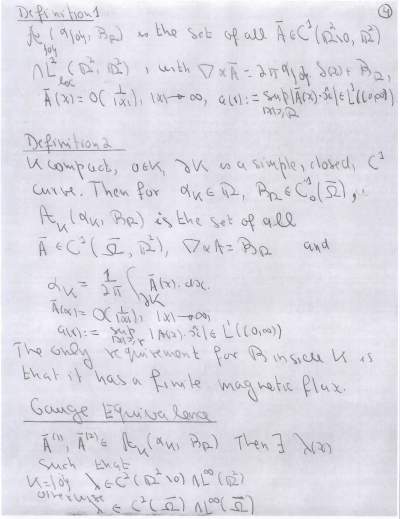 Definition 1 4
A_{0} (α_{0}, B_R) is the set of all Ā ∈ C^1(ℝ^2\0, ℝ^2)
∩ L^2_{loc} (ℝ^2, ℝ^2), with ∇×Ā = 2π α_{0} δ(x) + B_R,
Ā(x) = O(1/|x|), |x|→∞, a(r) := sup_{|x|≥r} |Ā(x)·x̂| ∈ L^1((0,∞))
Definition 2
K compact, 0∈K, ∂K is a simple, closed, C^1
curve. Then for α_K ∈ ℝ, B_R ∈ C^1_0(Ω̄),
A_K(α_K, B_R) is the set of all
Ā ∈ C^1(Ω̄, ℝ^2), ∇×A = B_R and
α_K = 1/2π ∫_{∂K} Ā(x)·dx.
Ā(x) = O(1/|x|), |x|→∞
a(r) := sup_{|x|≥r} |A(x)·x̂| ∈ L^1((0,∞))
The only requirement for B inside K is
that it has a finite magnetic flux.
Gauge Equivalence
Ā^{(1)}, Ā^{(2)} ∈ A_K(α_K, B_R) Then ∃ λ(x)
such that
K={0} λ ∈ C^2(ℝ^2\0) ∩ L^∞(ℝ^2)
otherwise λ ∈ C^2(Ω̄) ∩ L^∞(Ω̄)